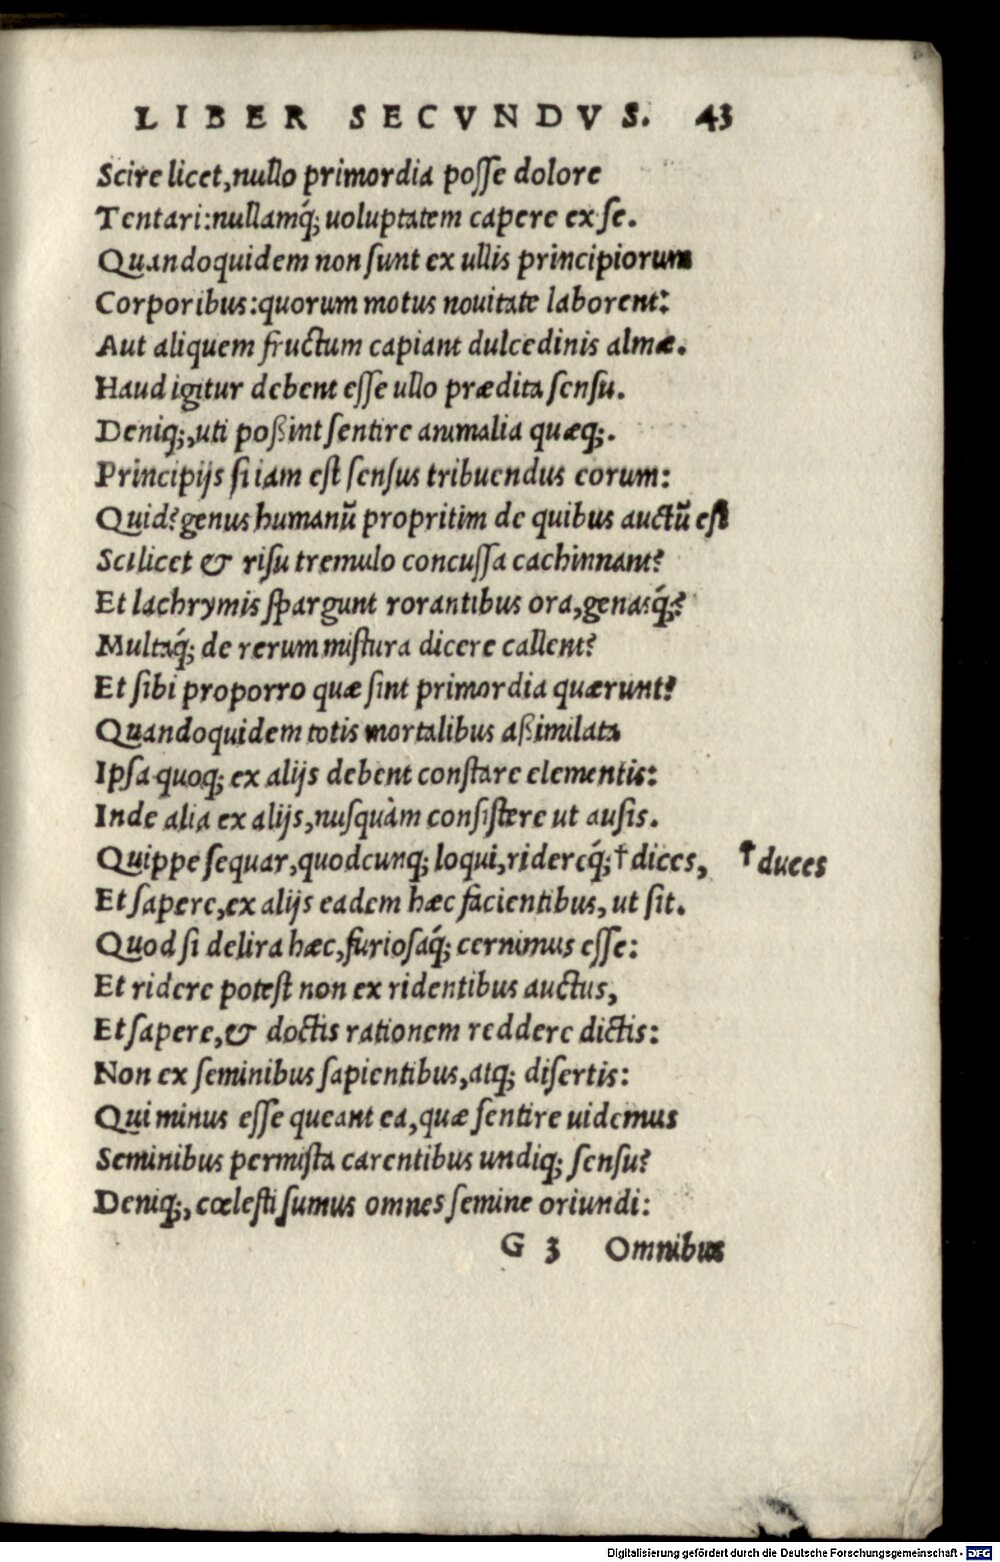 LIBER SECVNDVS. 43
Scire licet, nullo primordia posse dolore
Tentari: nullamq́; uoluptatem capere ex se.
Quandoquidem non sunt ex ullis principiorum
Corporibus: quorum motus nouitate laborent:
Aut aliquem fructum capiant dulcedinis almæ.
Haud igitur debent esse ullo prædita sensu.
Deniq;, uti poßint sentire animalia quæq;.
Principijs si iam est sensus tribuendus eorum:
Quid? genus humanũ propritim de quibus auctũ est
Scilicet & risu tremulo concussa cachinnant?
Et lachrymis spargunt rorantibus ora, genasq́;?
Multaq́; de rerum mistura dicere callent?
Et sibi proporro quæ sint primordia quærunt?
Quandoquidem totis mortalibus aßimilata
Ipsa quoq; ex alijs debent constare elementis:
Inde alia ex alijs, nusquàm consistere ut ausis.
Quippe sequar, quodcunq; loqui, ridereq́; † dices, † duces
Et sapere, ex alijs eadem hæc facientibus, ut sit.
Quod si delira hæc, furiosaq́; cernimus esse:
Et ridere potest non ex ridentibus auctus,
Et sapere, & doctis rationem reddere dictis:
Non ex seminibus sapientibus, atq; disertis:
Qui minus esse queant ea, quæ sentire uidemus
Seminibus permista carentibus undiq; sensu?
Deniq;, cœlesti sumus omnes semine oriundi:
G 3 Omnibus
Digitalisierung gefördert durch die Deutsche Forschungsgemeinschaft - DFG